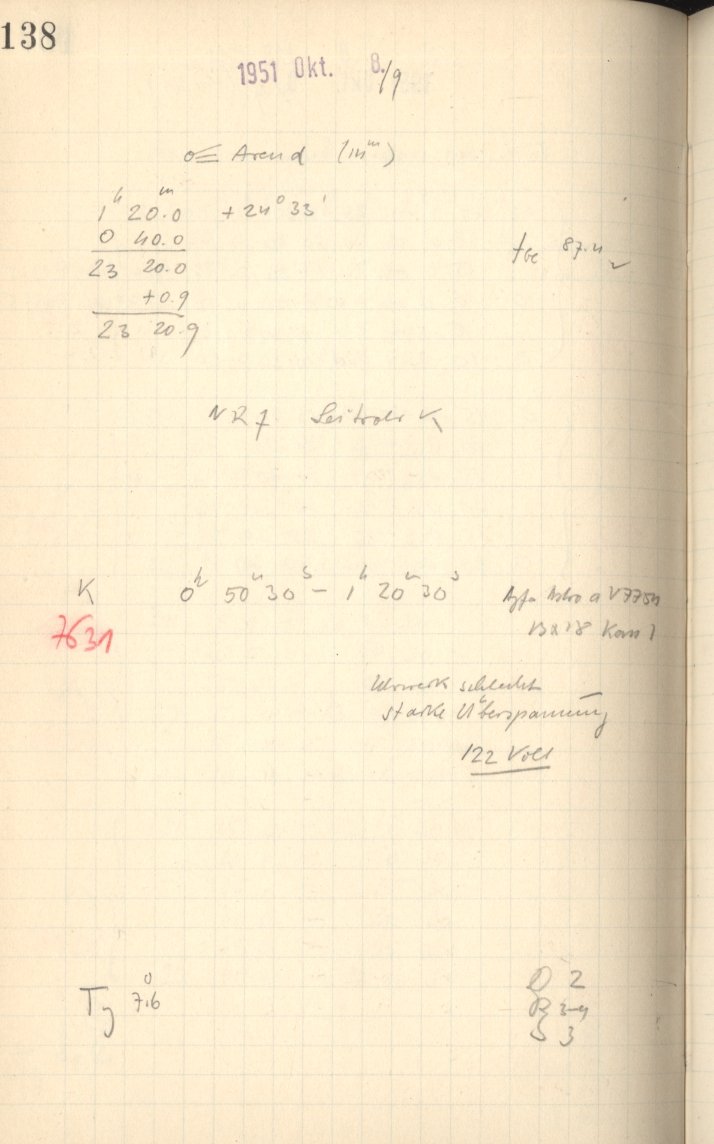 138
1951 Okt. 8./9
☄ Arend (11ᵐ)
1ʰ 20.0ᵐ +24° 33'
0 40.0
23 20.0
+0.9
23 20.9
87.4
NR 7 K
K 0ʰ 50ᵐ 30ˢ – 1ʰ 20ᵐ 30ˢ Agfa Astro
7631
Uhrwerk schlecht
starke Überspannung
122 Volt
T 7°.6
2
R 3-4
S 3